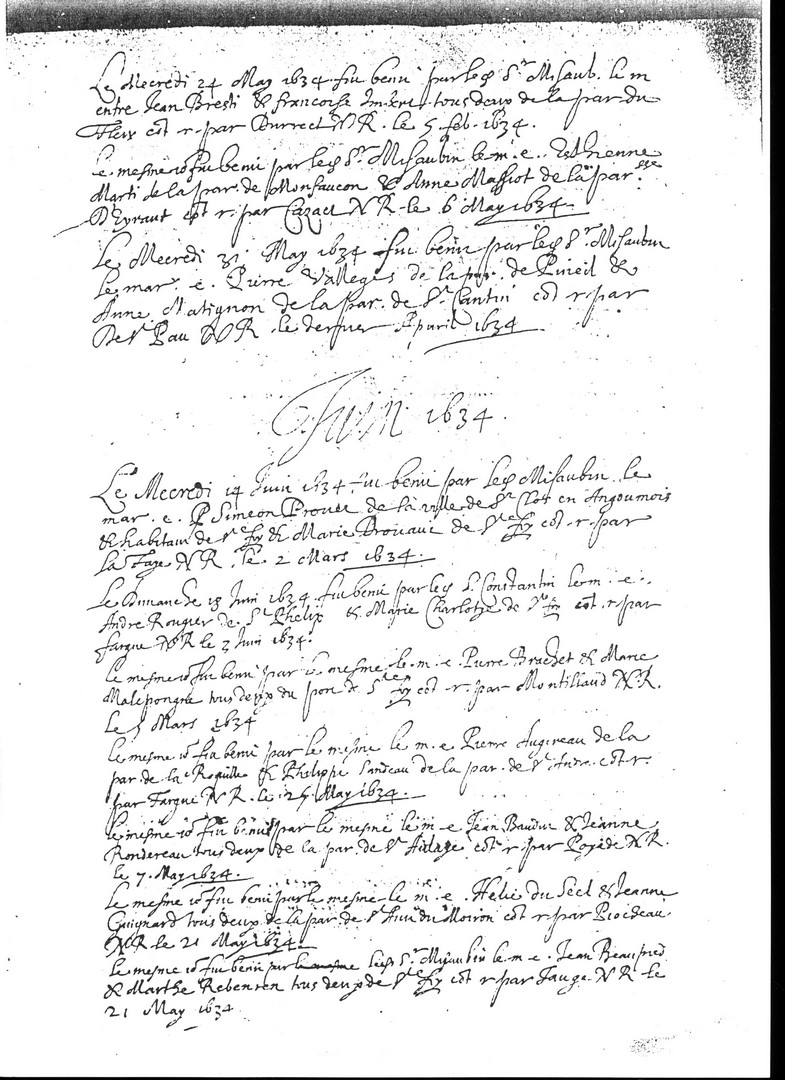 Le Mecredi 24 May 1634 fut beni par led Sr Misaub. le m
entre Jean Bresti & francoise Imbert tous deux de la par du
Fleix cot r par Durrect N R. le 5 feb. 1634.
Le mesme io fut beni par led Sr Misaubin le m. e. Esthienne
Marti de la par. de Monfaucon & Anne Massiot de la par.sse
D'Eyraut cot r par Cazact N R le 6 May 1634
Le Mecredi 31 May 1634 fut beni par led Sr Misaubin
le mar. e. Pierre Valleges de la par. de Pineil &
Anne Matignon de la par. de St Cantin cot r par
De St Pau N R le dernier Apuril 1634
Juin 1634.
Le Mecredi 14 Juin 1634 fut beni par led Misaubin le
mar. e. P Simeon Prouet de la ville de St Clot en Angoumois
& habitant de Ste Foy & Marie Drouaut de Ste Foy cot r par
La Faye N R. le 2 Mars 1634.
Le Dimanche 18 Juin 1634 fut beni par led S. Constantin le m. e.
Andre Rougier de St Phelix & Marie Charlotte de Ste foy cot r par
fargue N R le 2 Juin 1634.
Le mesme io fut beni par le mesme le m. e Pierre Brachet & Marie
Malepongne tous deux du port de Ste Foy cot r par Montilliaud N R.
Le 5 Mars 1634
Le mesme io fut beni par le mesme le m. e Pierre Augereau de la
par. de la Roquille & Phelippe Landeau de la par. de St Andre. cot r.
par Fargue N R. le 25 May 1634.
Le mesme io fut beni par le mesme le m e Jean Bauduc & Jeanne
Rondereau tous deux de la par. de St cot r par N R.
le 7. May 1634.
Le mesme io fut beni par le mesme le m. e. Helie du Secl & Jeanne
Guignard tous deux de la par. de St du Moiron cot r par Rocheau
N R le 21 May 1634
Le mesme io fut beni par le mesme led Sr Misaubin le m. e Jean Beaupied
& Marthe Rebenren tous deux de Ste Foy cot r par Fauge N R le
21 May 1634